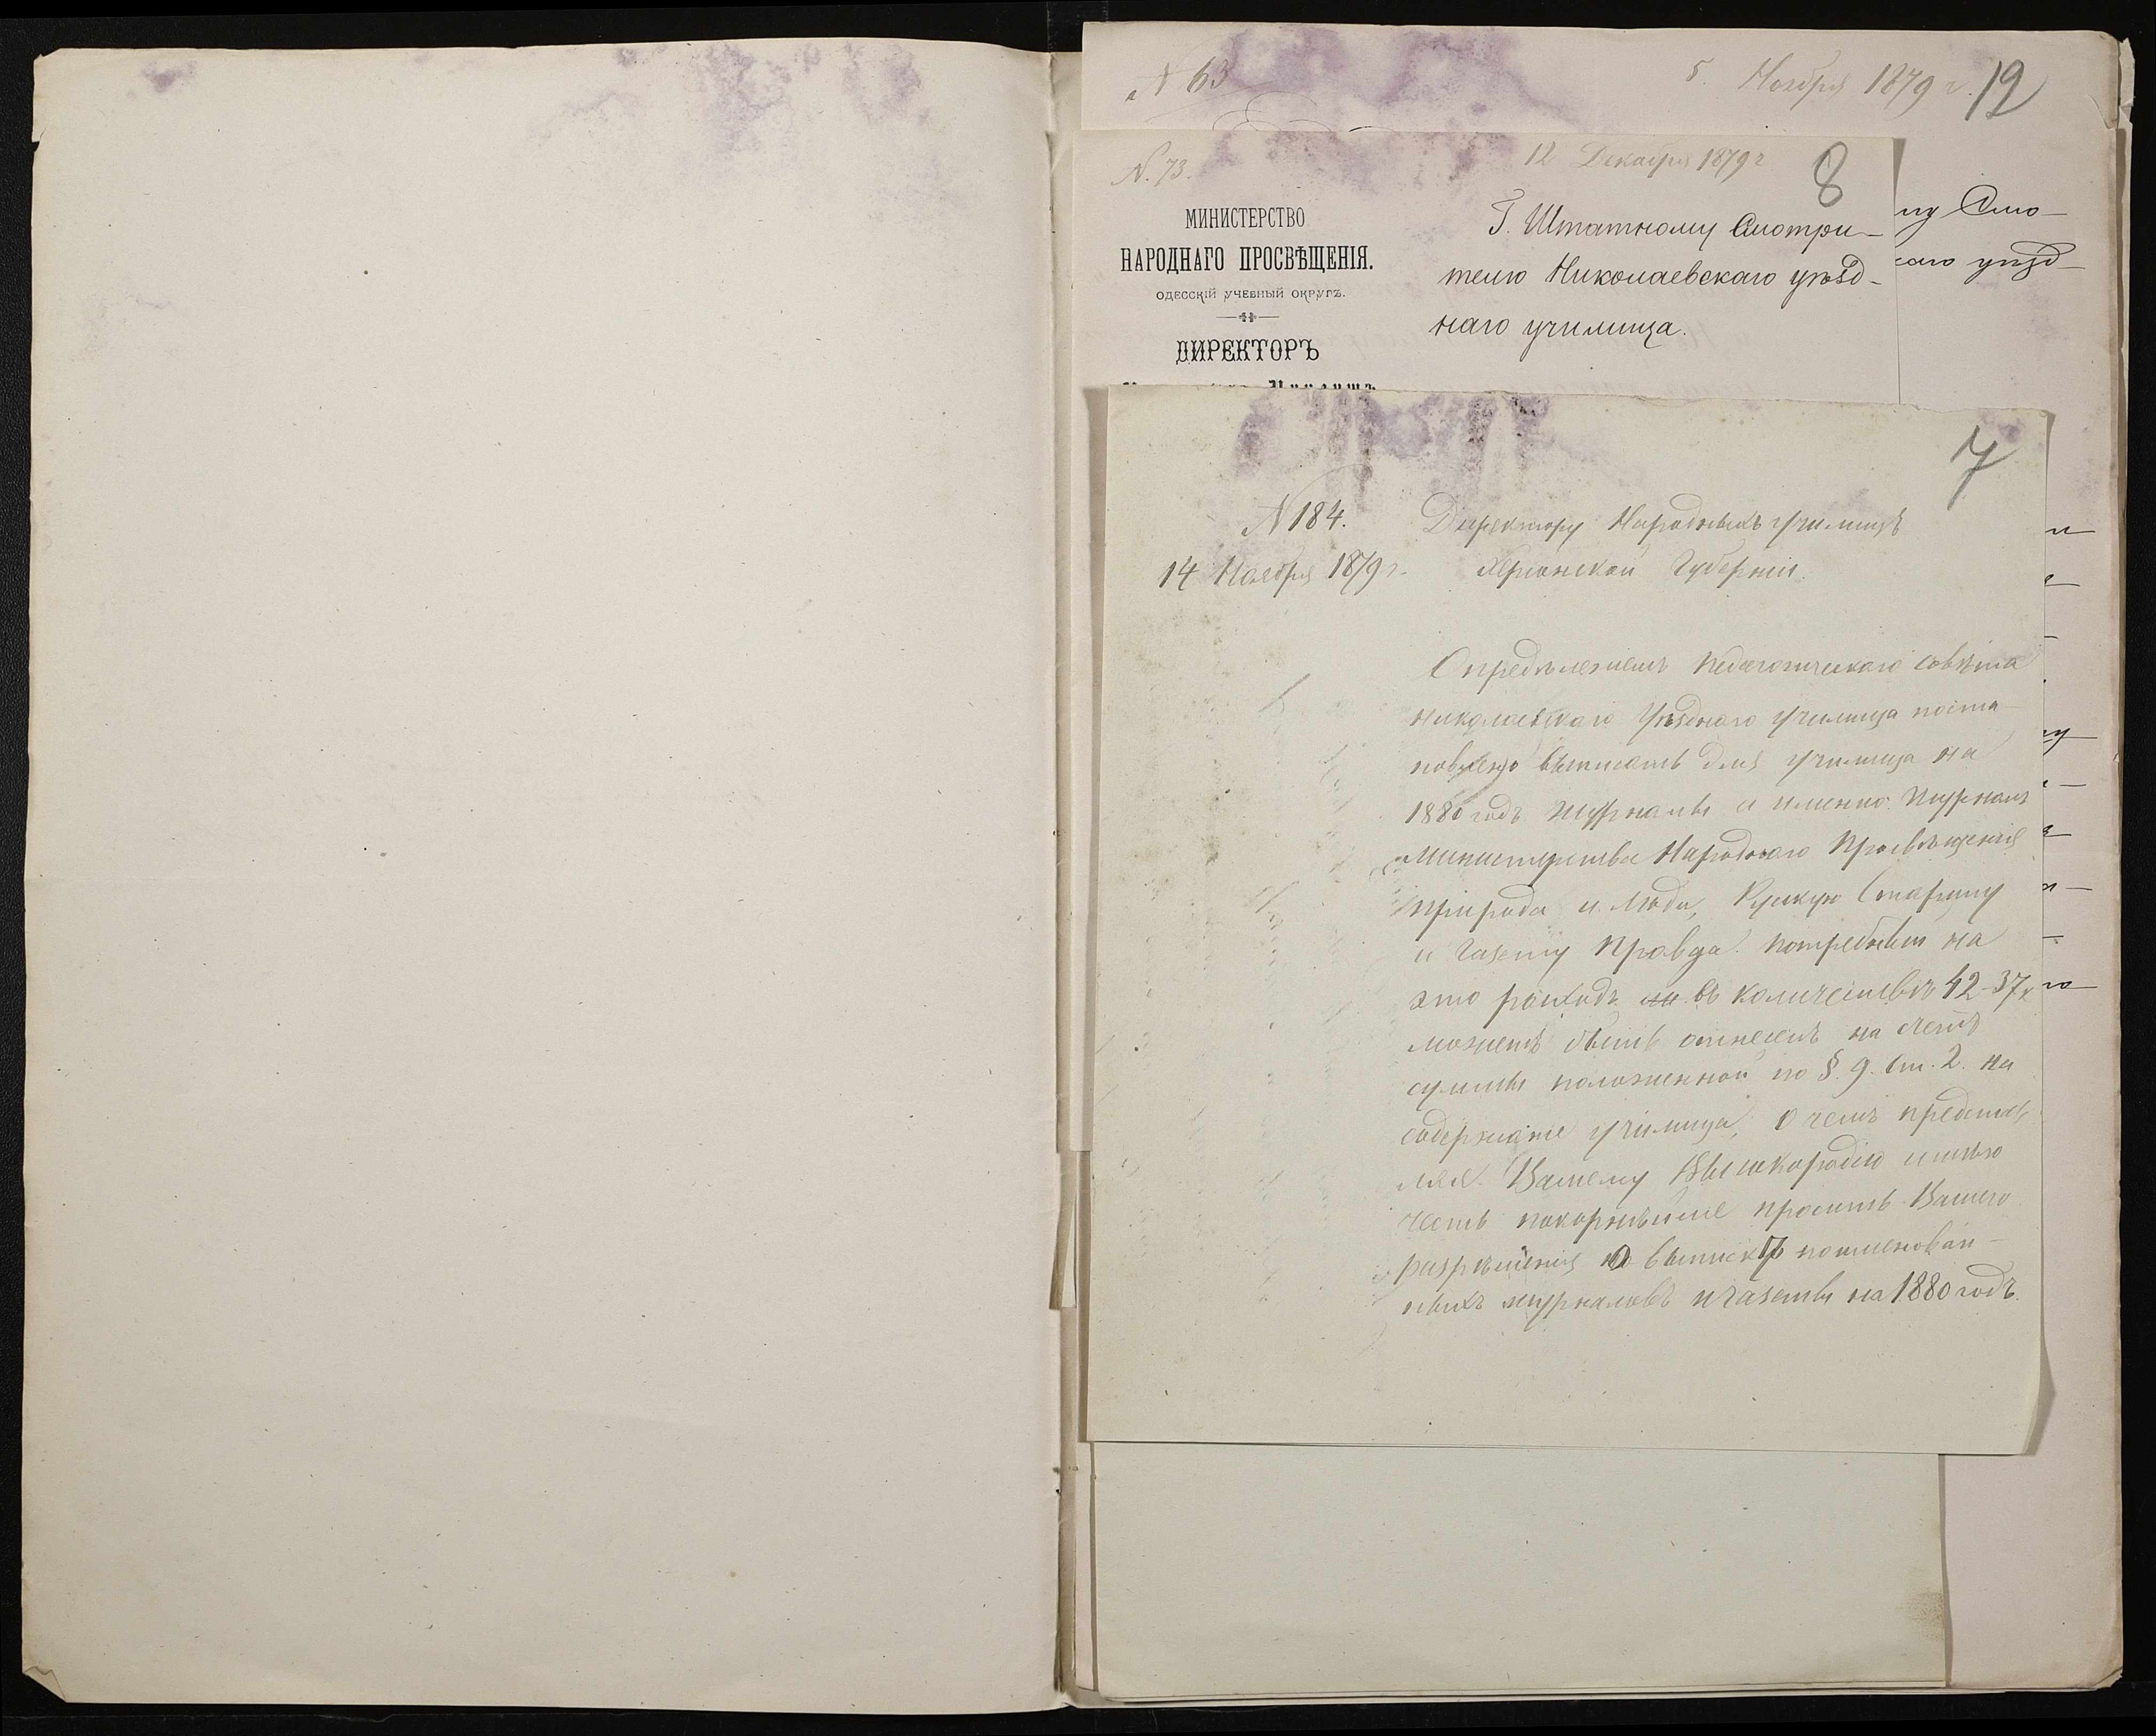 N 63
5. Ноября 1879 г. 12
N. 73.
12 Декабря 1879 г
8
МИНИСТЕРСТВО
НАРОДНАГО ПРОСВѢЩЕНІЯ.
ОДЕССКІЙ УЧЕБНЫЙ ОКРУГЪ.
ДИРЕКТОРЪ
Г. Штатному Смотри-
телю Николаевскаго уѣзд-
наго училища.
му Смо-
скаго уѣзд-
7
N 184.
14 Ноября 1879 г.
Директору Народныхъ училищъ
Херсонской Губерніи.
Опредѣленіемъ педагогическаго совѣта
николаевскаго Уѣзднаго училища поста-
новлено выписать для училища на
1880 годъ журналы а именно: журналъ
Министерства Народнаго Просвѣщенія
природа и люди, Рускую Старину
и газету Правда. потребный на
это расходъ въ количествѣ 42-37к
можетъ быть отнесенъ на счетъ
суммы положенной по §. 9. ст. 2. на
содержаніе училища, о чемъ представ
ляя Вашему Высокородію имѣю
честь покорнѣйше просить Вашего
разрѣшенія о выпискѣ поименован-
ныхъ журналовъ и газеты на 1880 годъ.